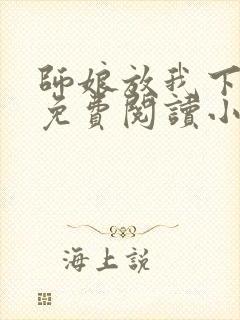 師娘放我下
免費閱讀小
海上説